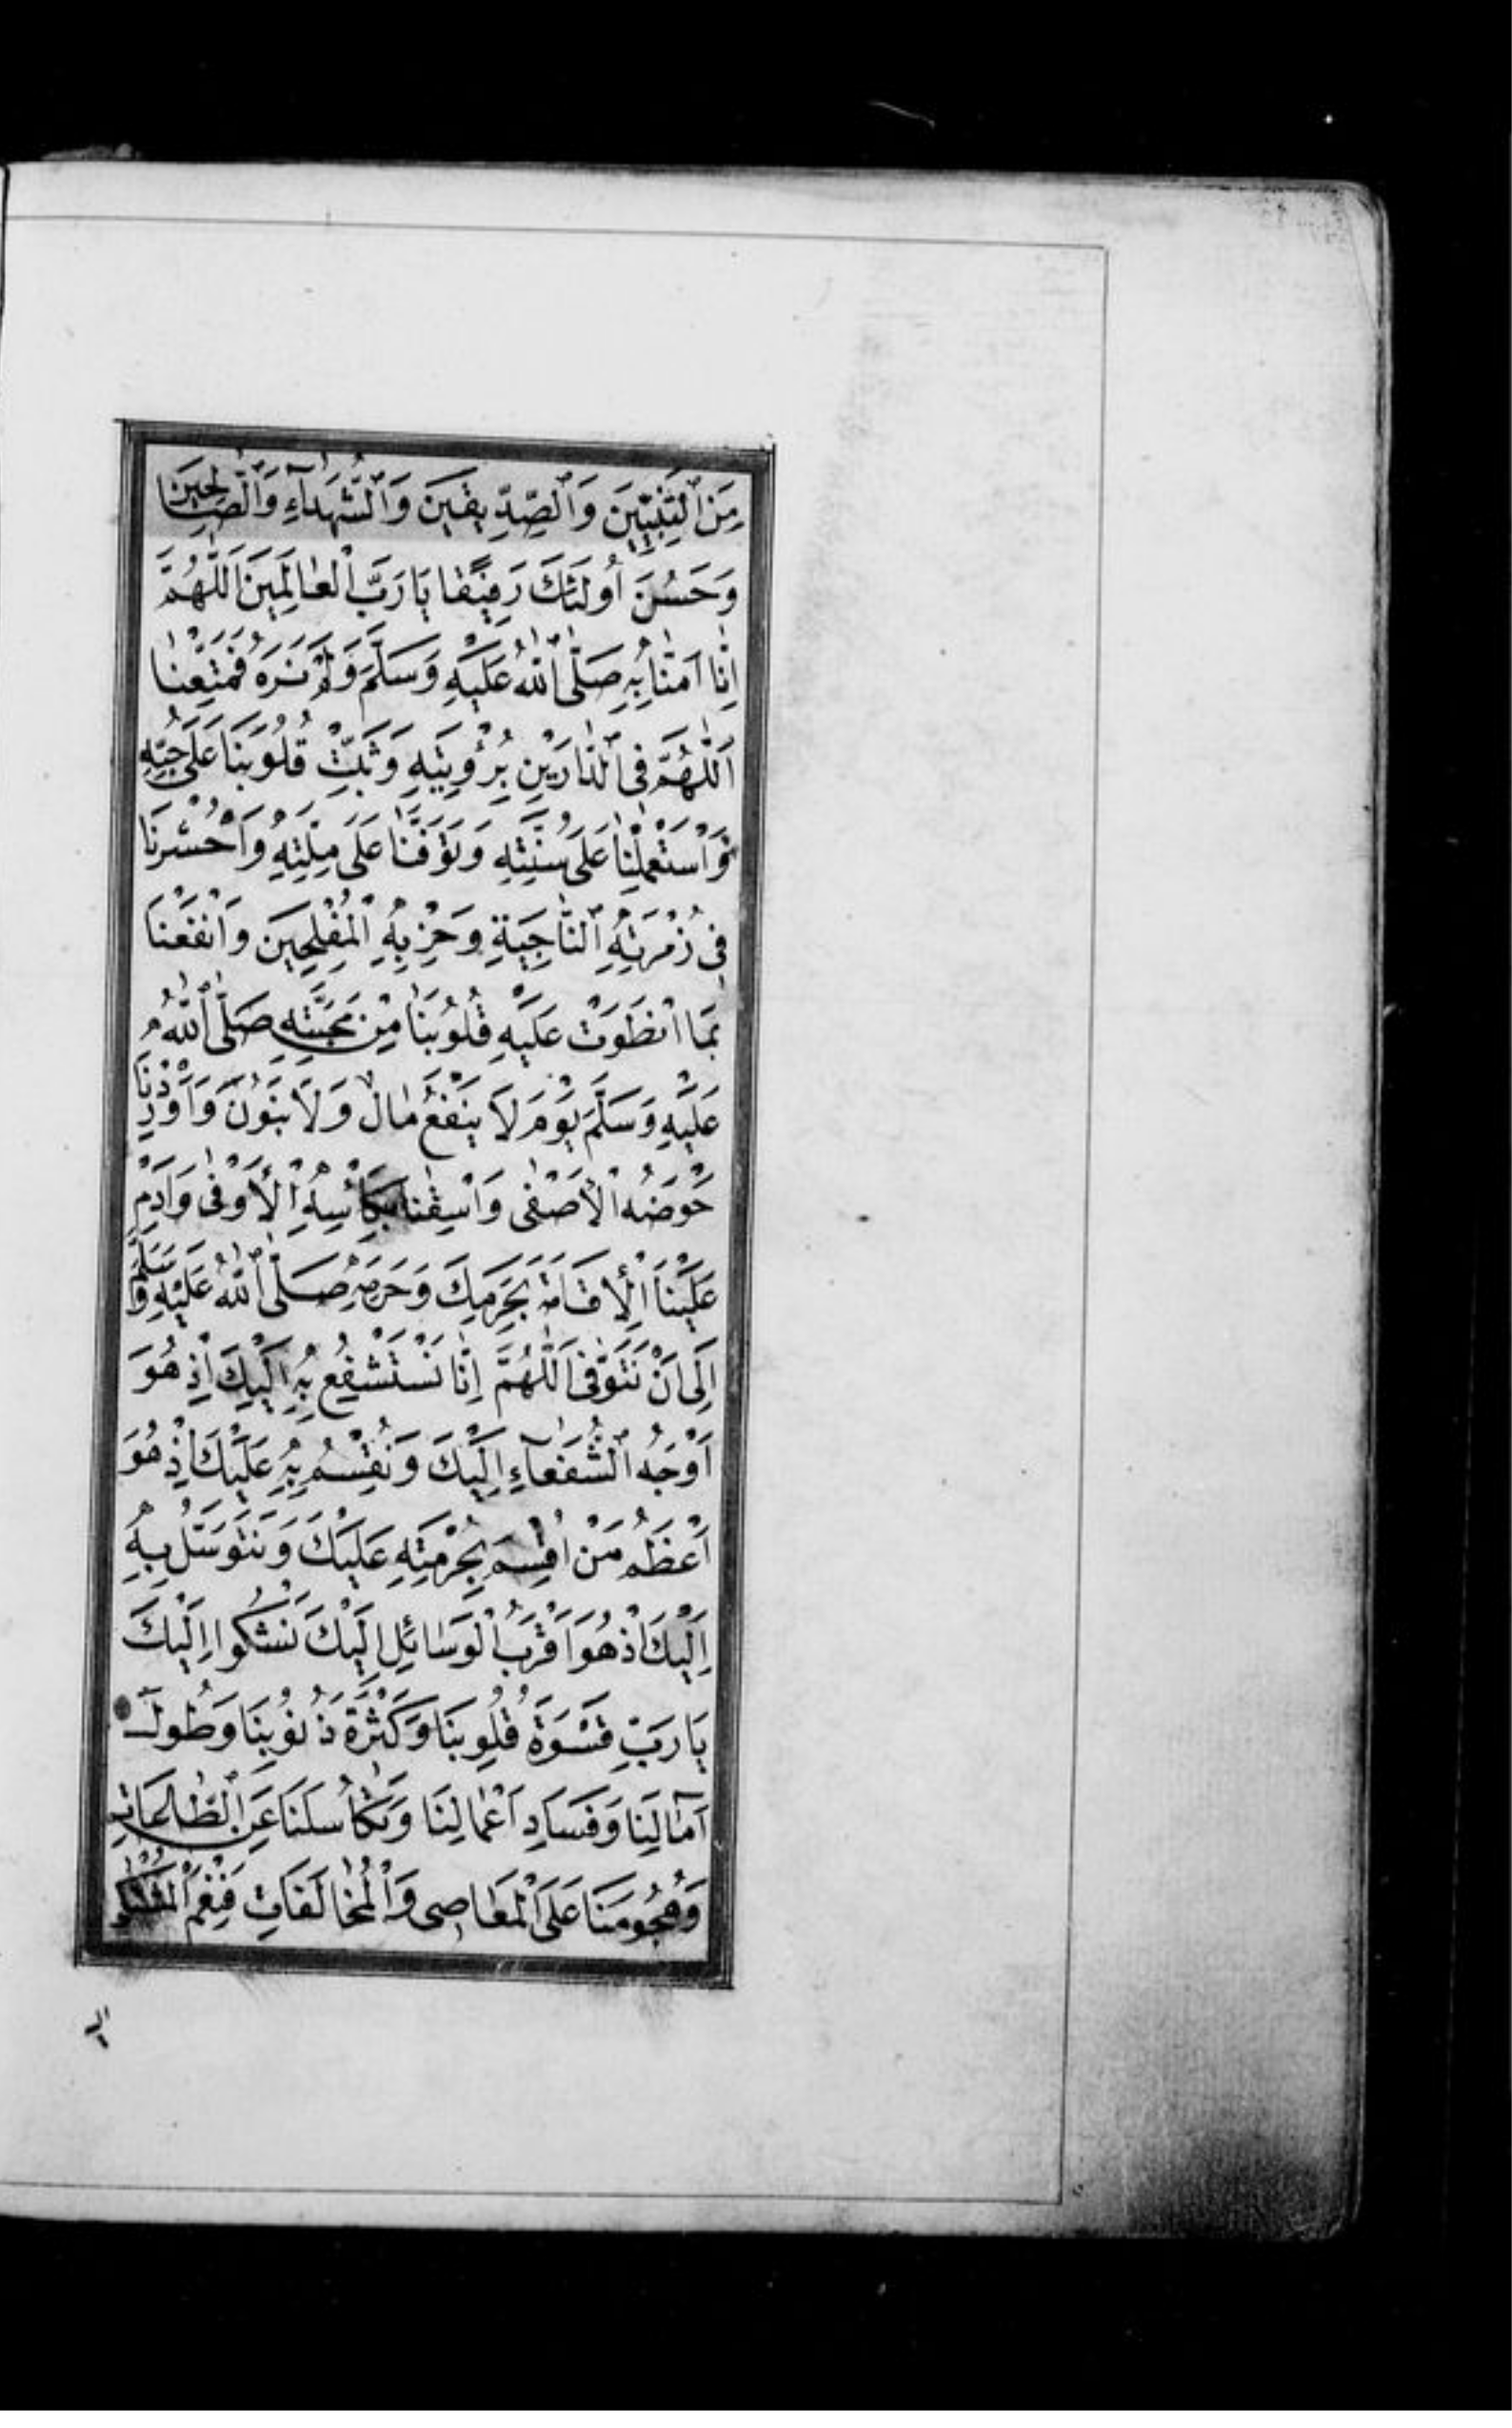 مِنَ ٱلنَّبِيِّينَ وَٱلصِّدِّيقِينَ وَٱلشُّهَدَآءِ وَٱلصَّالِحِينَ
وَحَسُنَ أُولَئِكَ رَفِيقًا يَا رَبَّ ٱلْعَالَمِينَ اَللّٰهُمَّ
اِنَّا اٰمَنَّا بِهِ صَلَّى ٱللّٰهُ عَلَيْهِ وَسَلَّمَ وَلَمْ نَرَهُ فَمَتِّعْنَا
اَللّٰهُمَّ فِى ٱلدَّارَيْنِ بِرُؤْيَتِهِ وَثَبِّتْ قُلُوبَنَا عَلَى مَحَبَّتِهِ
وَاسْتَعْمِلْنَا عَلَى سُنَّتِهِ وَتَوَفَّنَا عَلَى مِلَّتِهِ وَاحْشُرْنَا
فِى زُمْرَتِهِ ٱلنَّاجِيَةِ وَحِزْبِهِ ٱلْمُفْلِحِينَ وَانْفَعْنَا
بِمَا انْطَوَتْ عَلَيْهِ قُلُوبُنَا مِنْ مَحَبَّتِهِ صَلَّى ٱللّٰهُ
عَلَيْهِ وَسَلَّمَ يَوْمَ لَا يَنْفَعُ مَالٌ وَلَا بَنُونَ وَاَوْرِدْنَا
حَوْضَهُ ٱلْأَصْفَى وَاسْقِنَا بِكَأْسِهِ ٱلْأَوْفَى وَاَدِمْ
عَلَيْنَا ٱلْإِقَامَةَ بِحَرَمِكَ وَحَرَمِهِ صَلَّى ٱللّٰهُ عَلَيْهِ وَسَلَّمَ
اِلَى اَنْ نَتَوَفَّى اَللّٰهُمَّ اِنَّا نَسْتَشْفِعُ بِهِ اِلَيْكَ اِذْ هُوَ
اَوْجَهُ ٱلشُّفَعَآءِ اِلَيْكَ وَنُقْسِمُ بِهِ عَلَيْكَ اِذْ هُوَ
اَعْظَمُ مَنْ اُقْسِمَ بِحُرْمَتِهِ عَلَيْكَ وَنَتَوَسَّلُ بِهِ
اِلَيْكَ اِذْ هُوَ اَقْرَبُ ٱلْوَسَائِلِ اِلَيْكَ نَشْكُوا اِلَيْكَ
يَا رَبِّ قَسْوَةَ قُلُوبِنَا وَكَثْرَةَ ذُنُوبِنَا وَطُولَ
اٰمَالِنَا وَفَسَادِ اَعْمَالِنَا وَتَكَاسُلَنَا عَنِ ٱلطَّاعَاتِ
وَهُجُومَنَا عَلَى ٱلْمَعَاصِى وَٱلْمُخَالَفَاتِ فَنِعْمَ